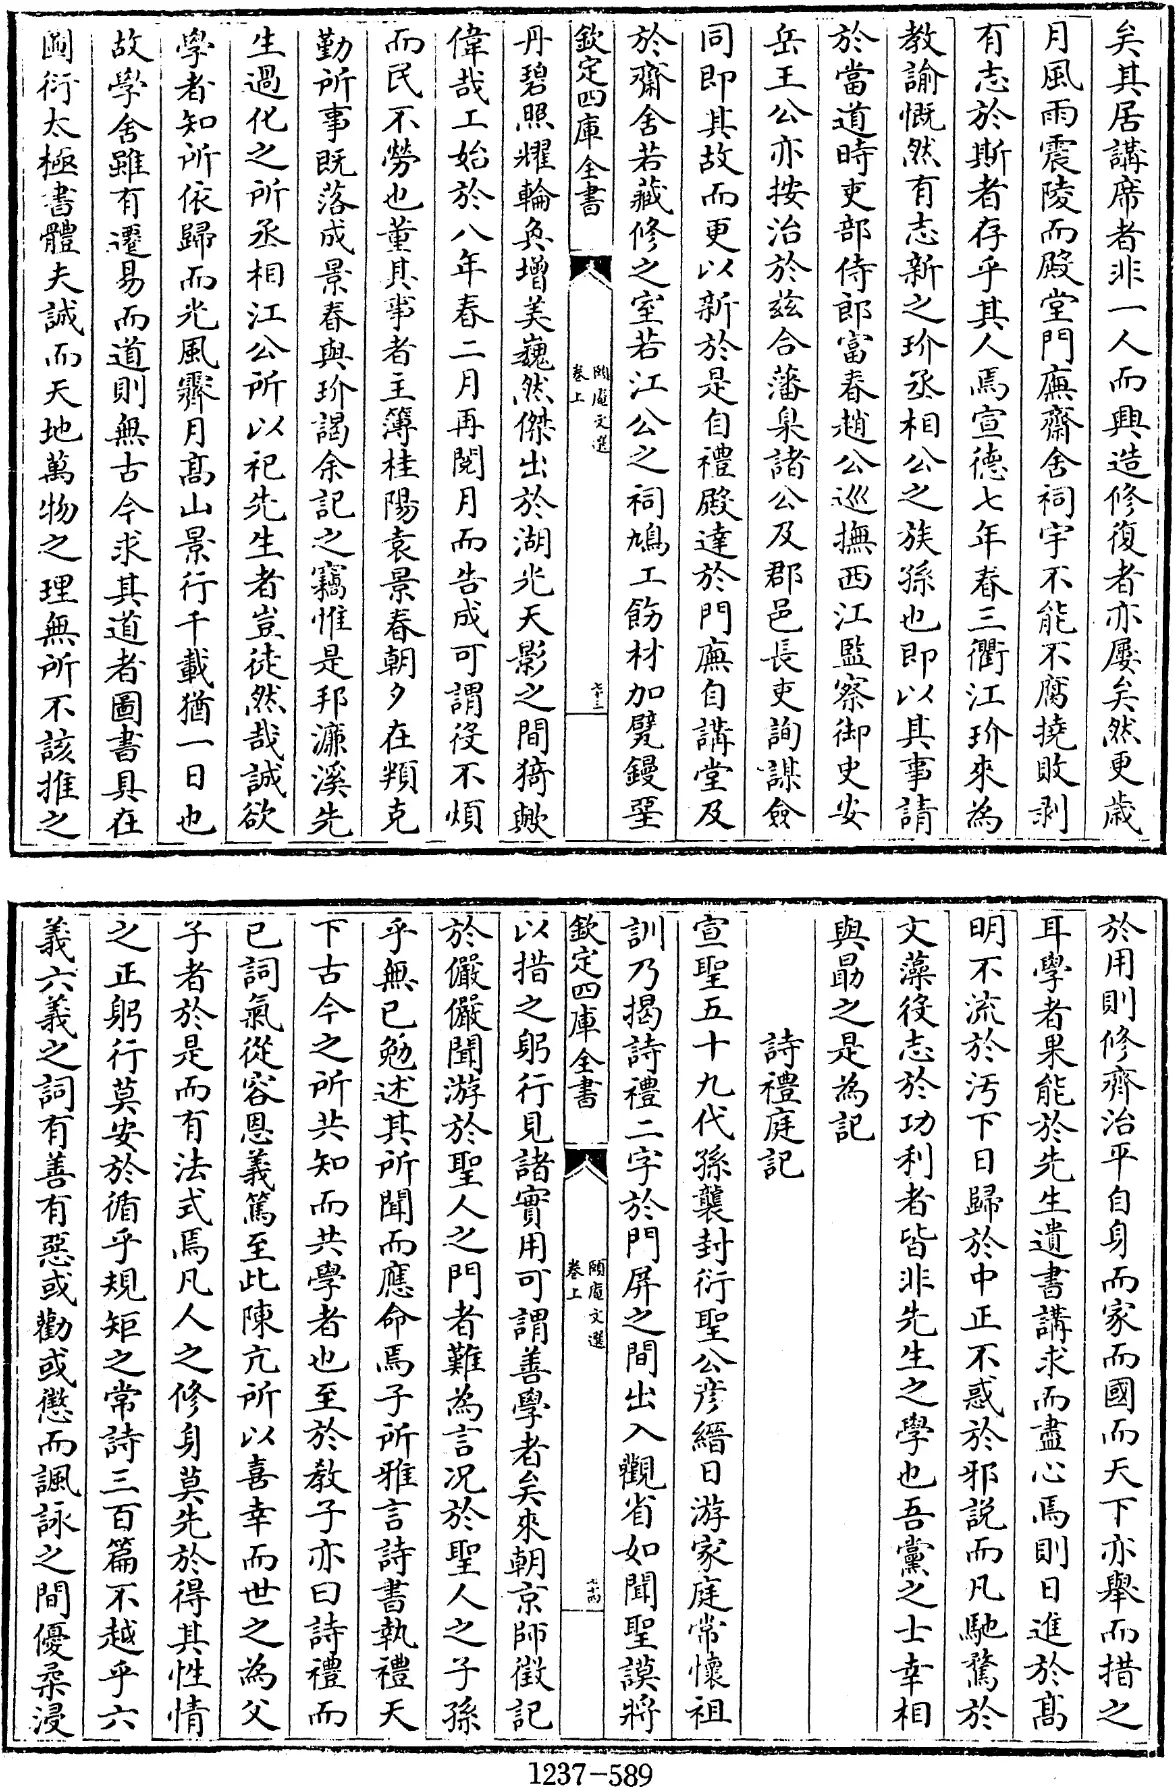 矣其居講席者非一人而興造修復者亦屢矣然更歲
月風雨震陵而殿堂門廡齋舍祠宇不能不腐撓敗剥
有志於斯者存乎其人焉宣德七年春三衢江玠來為
教諭慨然有志新之玠丞相公之族孫也即以其事請
於當道時吏部侍郎富春趙公巡撫西江監察御史安
岳王公亦按治於兹合藩臬諸公及郡邑長吏詢謀僉
同即其故而更以新於是自禮殿達於門廡自講堂及
於齋舍若藏修之室若江公之祠鳩工飭材加甓鏝堊
欽定四庫全書
頤庵文選
卷上
六十三
丹碧照耀輪奐增美巍然傑出於湖光天影之間猗歟
偉哉工始於八年春二月再閱月而告成可謂役不煩
而民不勞也董其事者主簿桂陽袁景春朝夕在頖克
勤所事既落成景春與玠謁余記之竊惟是邦濂溪先
生過化之所丞相江公所以祀先生者豈徒然哉誠欲
學者知所依歸而光風霽月髙山景行千載猶一日也
故學舍雖有遷易而道則無古今求其道者圖書具在
圖衍太極書體夫誠而天地萬物之理無所不該推之
於用則修齊治平自身而家而國而天下亦舉而措之
耳學者果能於先生遺書講求而盡心焉則日進於髙
明不流於汚下日歸於中正不惑於邪説而凡馳騖於
文藻役志於功利者皆非先生之學也吾黨之士幸相
與勗之是為記
詩禮庭記
宣聖五十九代孫襲封衍聖公彦縉日游家庭常懐祖
訓乃揭詩禮二字於門屏之間出入觀省如聞聖謨將
欽定四庫全書
頤庵文選
卷上
六十四
以措之躬行見諸實用可謂善學者矣來朝京師徵記
於儼儼聞游於聖人之門者難為言况於聖人之子孫
乎無已勉述其所聞而應命焉子所雅言詩書執禮天
下古今之所共知而共學者也至於教子亦曰詩禮而
已詞氣從容恩義篤至此陳亢所以喜幸而世之為父
子者於是而有法式焉凡人之修身莫先於得其性情
之正躬行莫安於循乎規矩之常詩三百篇不越乎六
義六義之詞有善有惡或勸或懲而諷詠之間優柔浸
1237-589